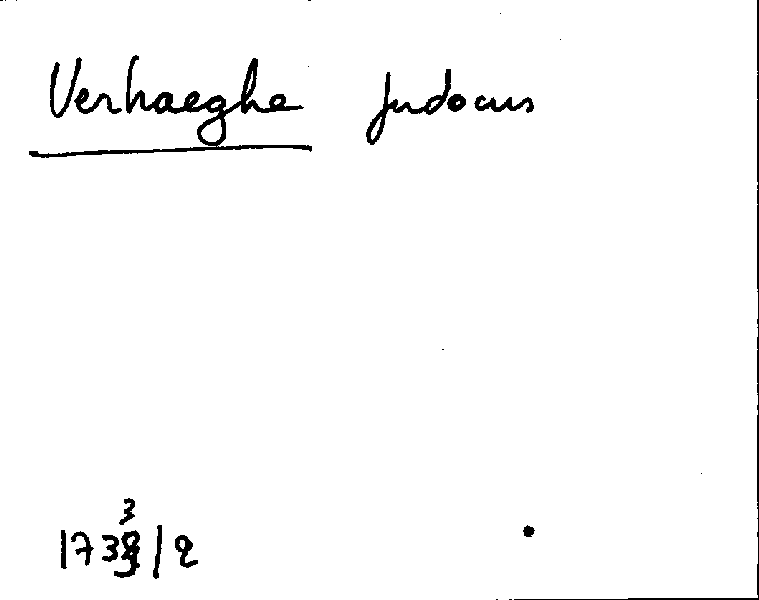 Verhaeghe Judocus
1733/2